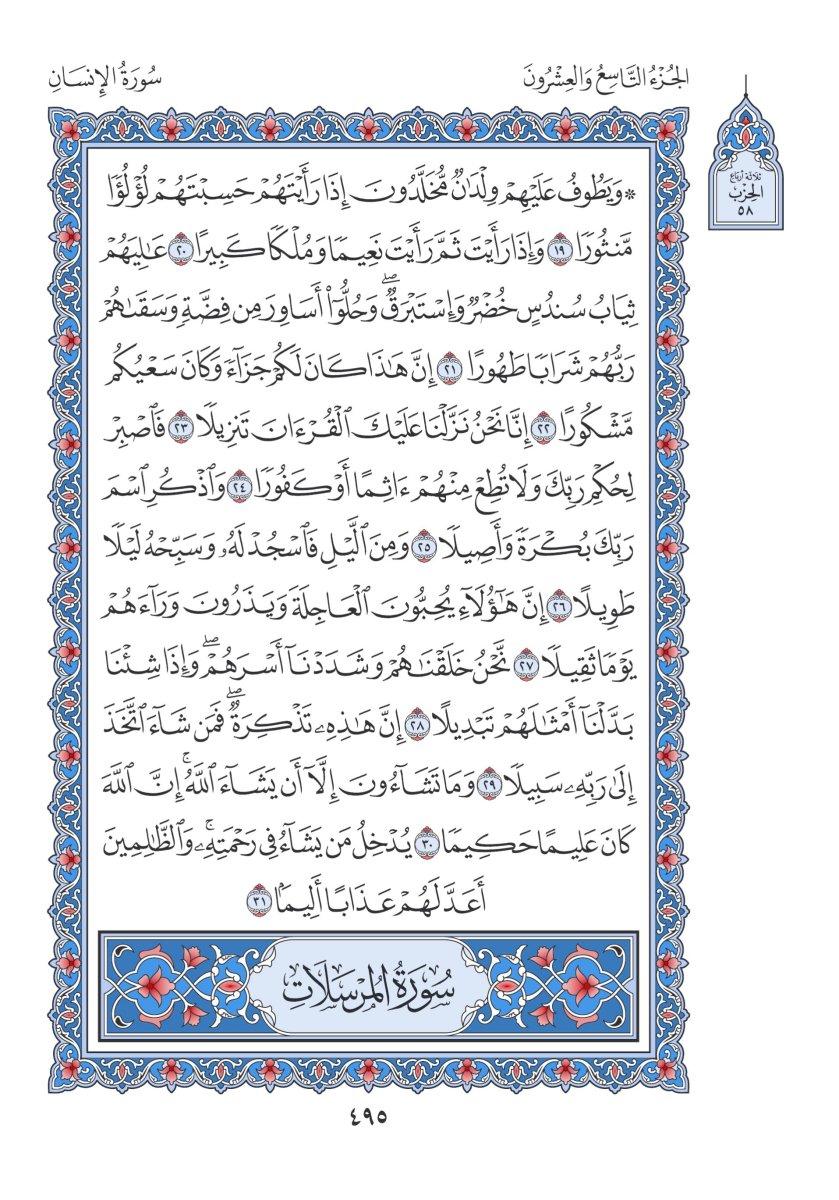 الجُزْءُ التَّاسِعُ وَالعِشْرُونَ
سُورَةُ الإِنسَانِ
ثلاثة أرباع
الحِزْب
٥٨
۞ وَيَطُوفُ عَلَيْهِمْ وِلْدَٰنٌ مُّخَلَّدُونَ إِذَا رَأَيْتَهُمْ حَسِبْتَهُمْ لُؤْلُؤًا
مَّنثُورًا ١٩ وَإِذَا رَأَيْتَ ثَمَّ رَأَيْتَ نَعِيمًا وَمُلْكًا كَبِيرًا ٢٠ عَٰلِيَهُمْ
ثِيَابُ سُندُسٍ خُضْرٌ وَإِسْتَبْرَقٌۖ وَحُلُّوٓا۟ أَسَاوِرَ مِن فِضَّةٍ وَسَقَىٰهُمْ
رَبُّهُمْ شَرَابًا طَهُورًا ٢١ إِنَّ هَٰذَا كَانَ لَكُمْ جَزَآءً وَكَانَ سَعْيُكُم
مَّشْكُورًا ٢٢ إِنَّا نَحْنُ نَزَّلْنَا عَلَيْكَ ٱلْقُرْءَانَ تَنزِيلًا ٢٣ فَٱصْبِرْ
لِحُكْمِ رَبِّكَ وَلَا تُطِعْ مِنْهُمْ ءَاثِمًا أَوْ كَفُورًا ٢٤ وَٱذْكُرِ ٱسْمَ
رَبِّكَ بُكْرَةً وَأَصِيلًا ٢٥ وَمِنَ ٱلَّيْلِ فَٱسْجُدْ لَهُۥ وَسَبِّحْهُ لَيْلًا
طَوِيلًا ٢٦ إِنَّ هَٰٓؤُلَآءِ يُحِبُّونَ ٱلْعَاجِلَةَ وَيَذَرُونَ وَرَآءَهُمْ
يَوْمًا ثَقِيلًا ٢٧ نَّحْنُ خَلَقْنَٰهُمْ وَشَدَدْنَآ أَسْرَهُمْۖ وَإِذَا شِئْنَا
بَدَّلْنَآ أَمْثَٰلَهُمْ تَبْدِيلًا ٢٨ إِنَّ هَٰذِهِۦ تَذْكِرَةٌۖ فَمَن شَآءَ ٱتَّخَذَ
إِلَىٰ رَبِّهِۦ سَبِيلًا ٢٩ وَمَا تَشَآءُونَ إِلَّآ أَن يَشَآءَ ٱللَّهُۚ إِنَّ ٱللَّهَ
كَانَ عَلِيمًا حَكِيمًا ٣٠ يُدْخِلُ مَن يَشَآءُ فِى رَحْمَتِهِۦۚ وَٱلظَّٰلِمِينَ
أَعَدَّ لَهُمْ عَذَابًا أَلِيمًۢا ٣١
سُورَةُ المُرْسَلَاتِ
٤٩٥